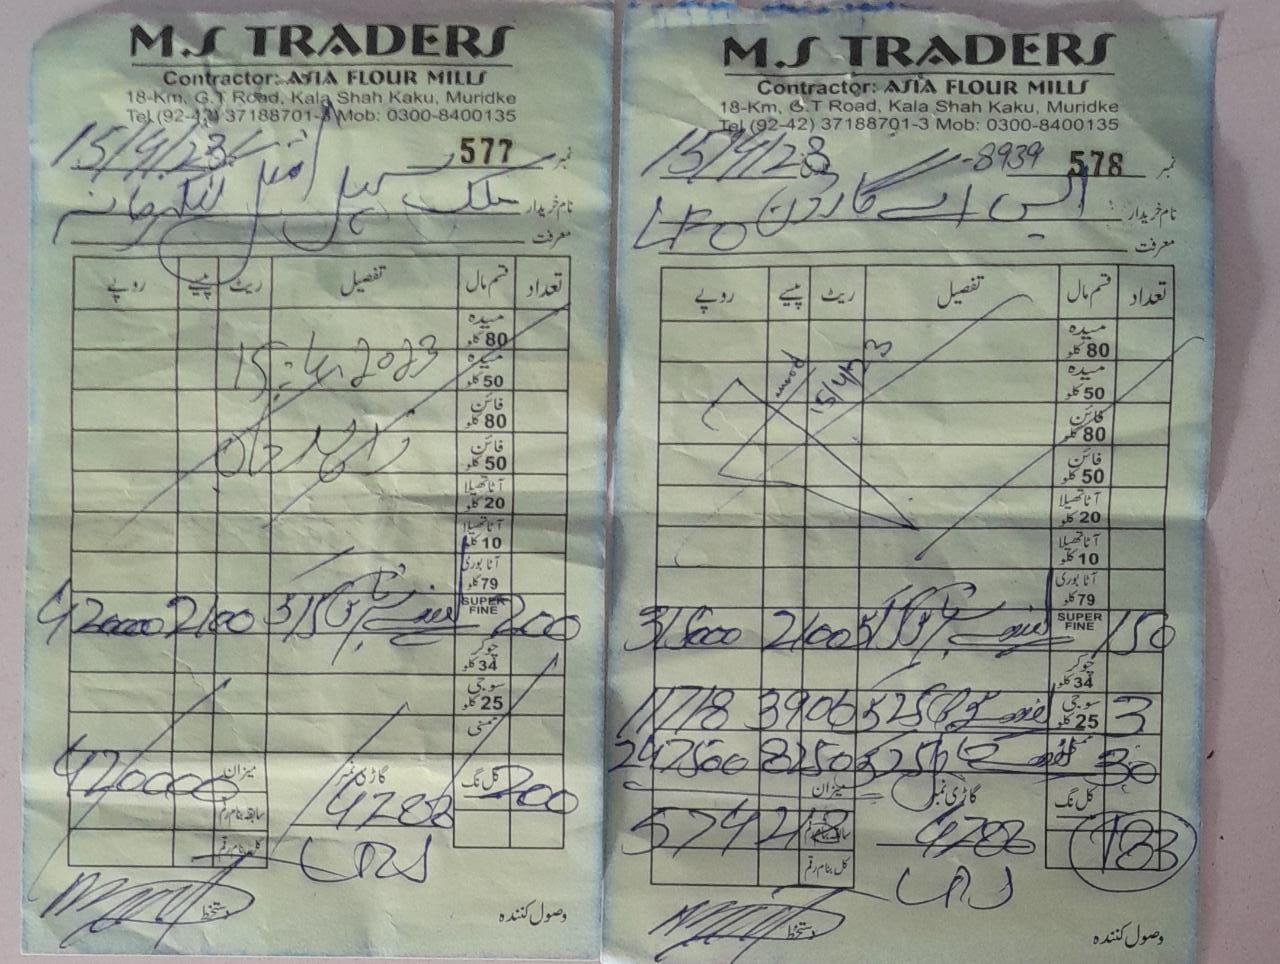 M.S TRADERS
Contractor: ASIA FLOUR MILLS
18-Km, G.T Road, Kala Shah Kaku, Muridke
Tel (92-42) 37188701-3 Mob: 0300-8400135
15/4/23 577 نمبر
نام خریدار ملک سہیل
معرفت
تعداد قسم مال تفصیل ریٹ پیسے روپے
میدہ 80 کلو
میدہ 50 کلو
15-4-2023
فائن 80 کلو
فائن 50 کلو
آٹا تھیلا 20 کلو
آٹا تھیلا 10 کلو
آٹا بوری 79 کلو
200 SUPER FINE 2100 420000
چوکر 34 کلو
سوجی 25 کلو
200 کل نگ گاڑی نمبر میزان 420000
4288 سابقہ بنام رقم
کل بنام رقم
وصول کنندہ دستخط
M.S TRADERS
Contractor: ASIA FLOUR MILLS
18-Km, G.T Road, Kala Shah Kaku, Muridke
Tel (92-42) 37188701-3 Mob: 0300-8400135
15/4/23 -8939 578 نمبر
نام خریدار ایس اے گارڈن
معرفت
تعداد قسم مال تفصیل ریٹ پیسے روپے
میدہ 80 کلو
میدہ 50 کلو
15/4/23
فائن 80 کلو
فائن 50 کلو
آٹا تھیلا 20 کلو
آٹا تھیلا 10 کلو
آٹا بوری 79 کلو
150 SUPER FINE 2100 315000
چوکر 34 کلو
3 سوجی 25 کلو 3906 11718
30 8250 247500
کل نگ گاڑی نمبر میزان
183 4288 سابقہ بنام رقم 574218
کل بنام رقم
وصول کنندہ دستخط